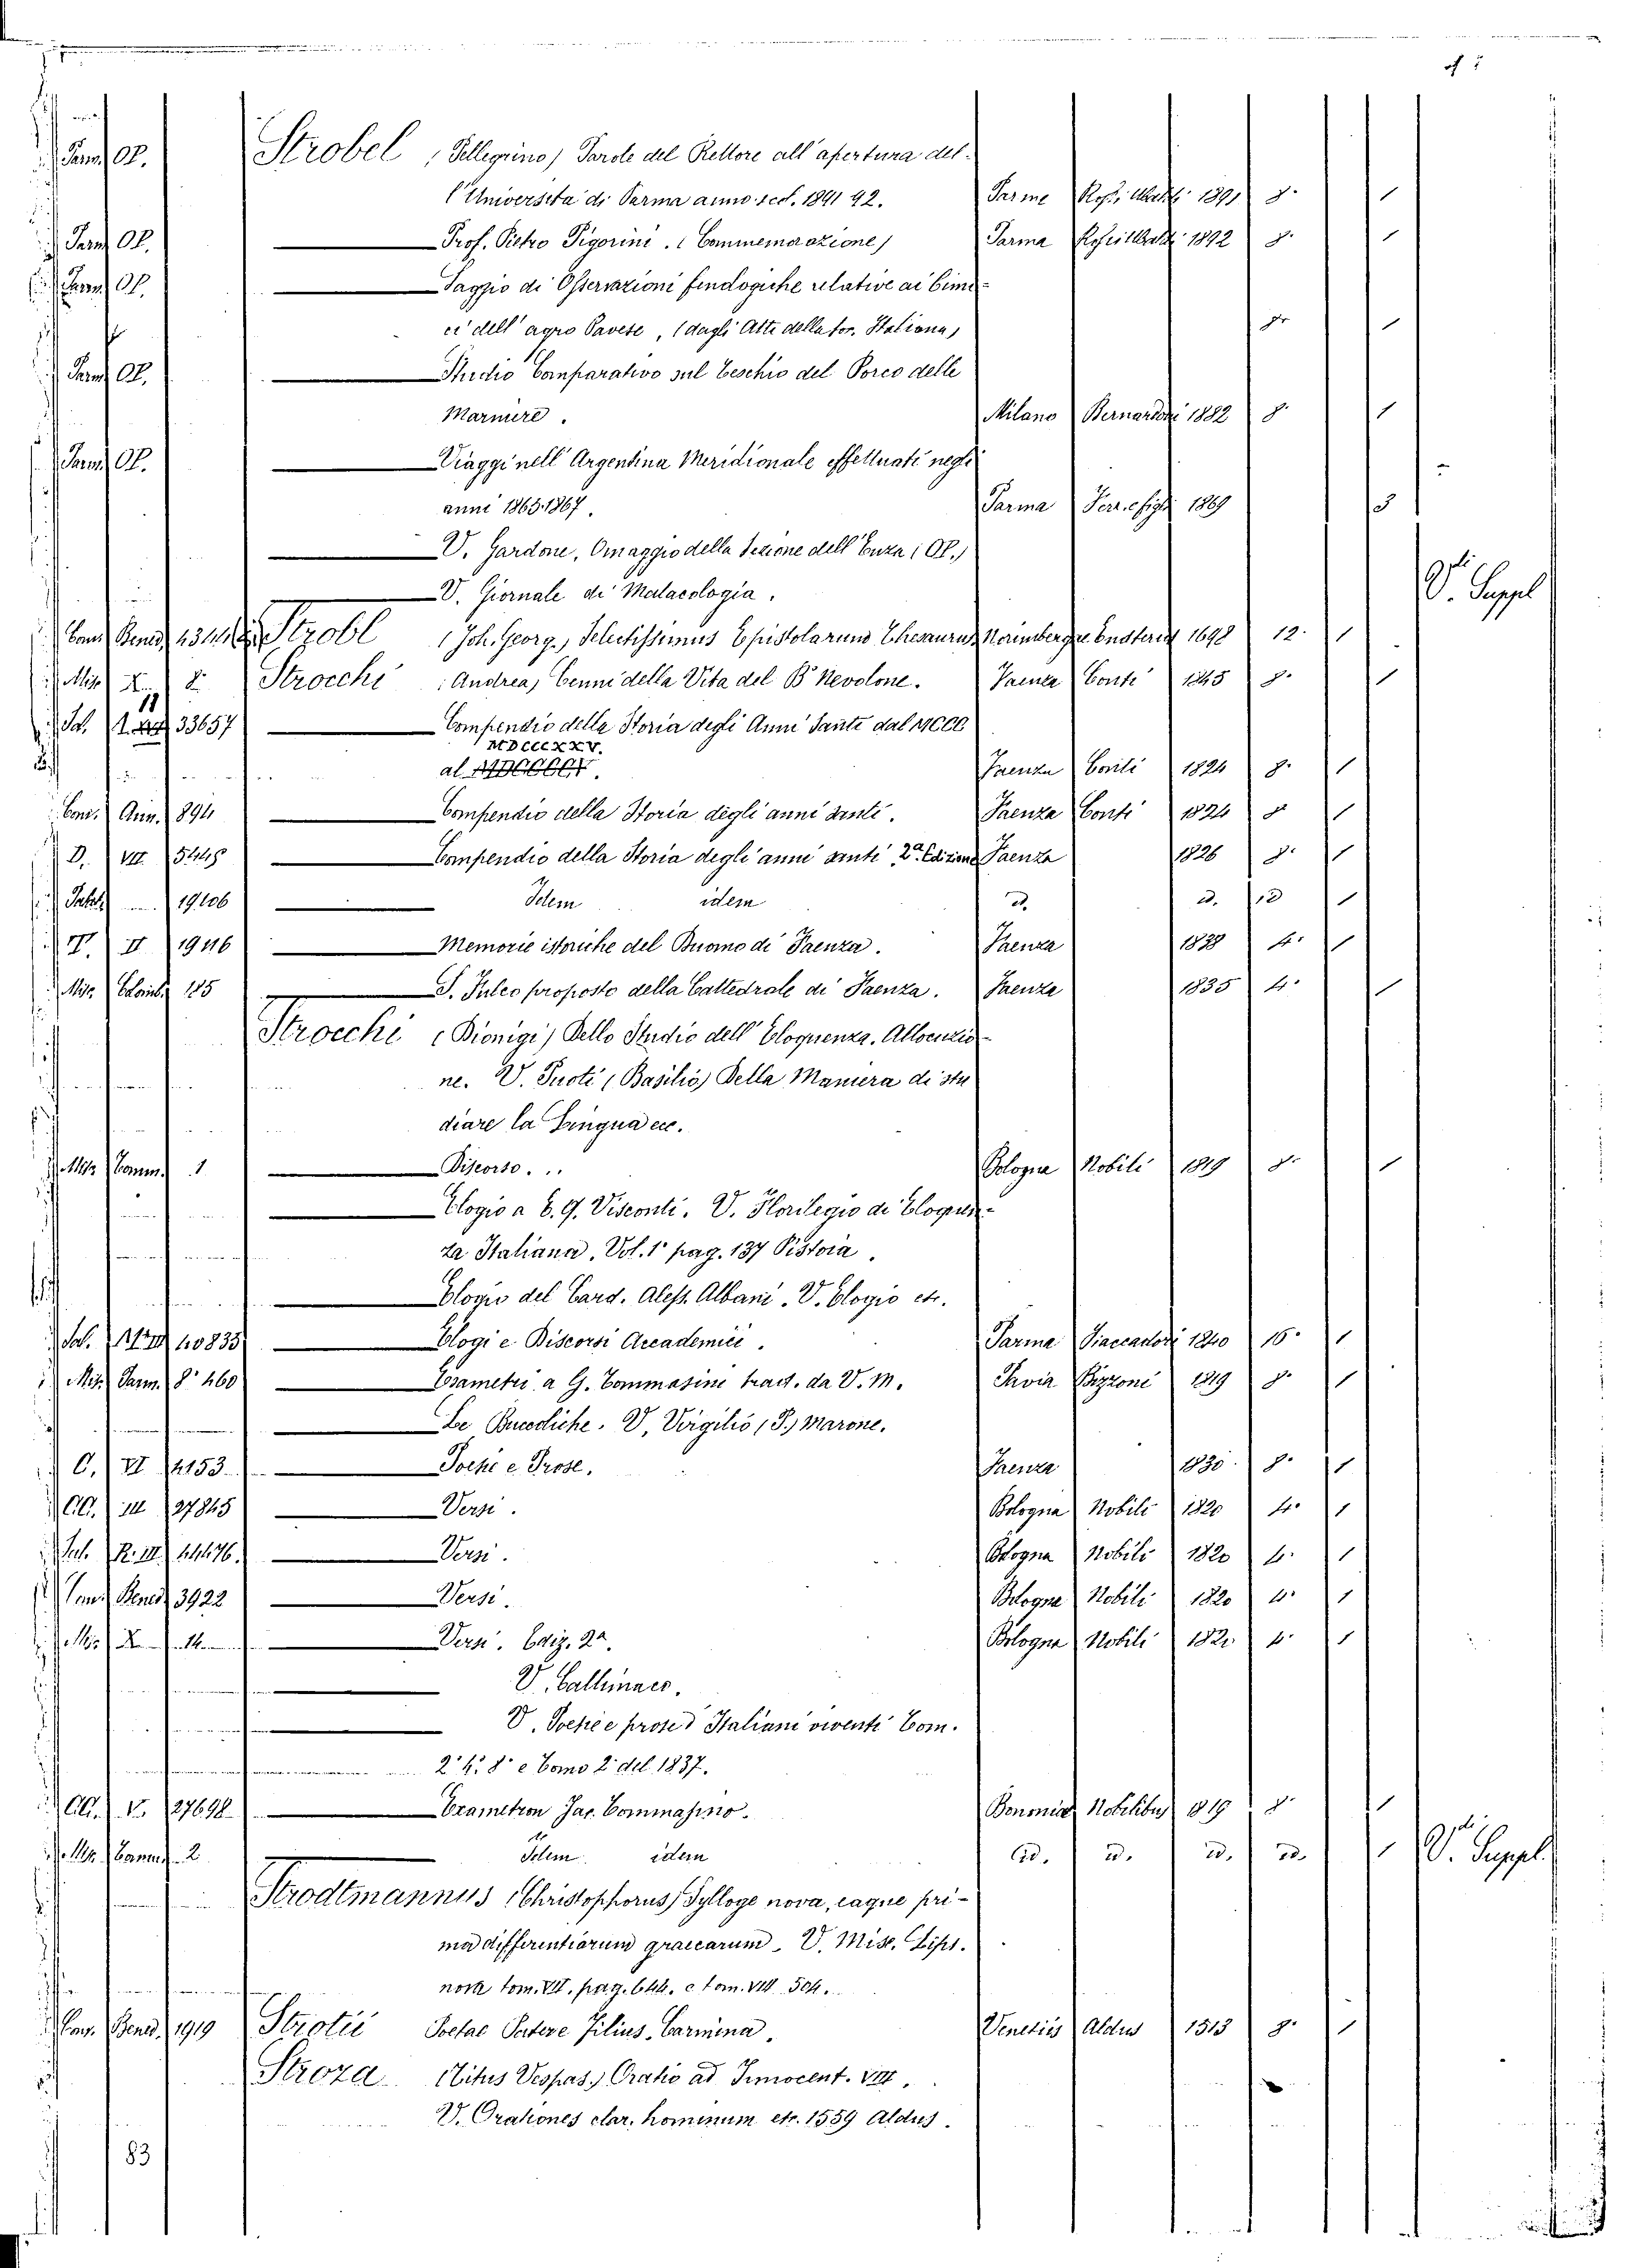 Parm. Op. Strobel (Pellegrino) Parole del Rettore all'apertura del-
l'Università di Parma anno scol. 1891 92. Parma 1891 8° 1
Parm. Op. Prof. Pietro Pigorini. (Commemorazione) Parma 1892 8° 1
Parm. Op. Saggio di Osservazioni fenologiche relative ai Cimi-
ci dell'agro Pavese, (dagli Atti della soc. Italiana) 8° 1
Parm. Op. Studio Comparativo sul teschio del Porco delle
Mariniere. Milano Bernardoni 1882 8° 1
Parm. Op. Viaggi nell'Argentina Meridionale effettuati negli
anni 1865-1867. Parma Ferr. e figli 1869 3
V. Gardone, Omaggio della Sezione dell'Enza (Op.)
V. Giornale di Malacologia. V. Suppl
Com. Bened. Strobl (Joh. Georg.) Selectissimus Epistolarum Thesaurus Norimbergæ Endteri 1698 12° 1
Misc. X. 2. Strocchi (Andrea) Cenni della Vita del B. Nevolone. Faenza Conti 1845 8° 1
11
Sal. 33657 Compendio della Storia degli Anni Santi dal MCCC
MDCCCXXV.
al Faenza Conti 1824 8° 1
Com. Ann. 894 Compendio della Storia degli anni santi. Faenza Conti 1824 8 1
D. VII. 5445 Compendio della Storia degli anni santi 2ª Edizione Faenza 1826 8° 1
19206 Idem idem d. d. 12 1
T. II 19416 Memorie istoriche del Duomo di Faenza. Faenza 1838 4° 1
Misc. Colomb. 185 S. Puleo proposto della Cattedrale di Faenza. Faenza 1835 4° 1
Strocchi (Dionigi) Dello Studio dell'Eloquenza. Allocuzio-
ne. V. Puoti (Basilio) Della Maniera di stu
diare la Lingua ecc.
Misc. Comm. 1 Discorso... Bologna Nobili 1819 8° 1
Elogio a E. Q. Visconti. V. Florilegio di Eloquen-
za Italiana. Vol. 1° pag. 137 Pistoia.
Elogio del Card. Aless. Albani. V. Elogio etc.
Sal. 40835 Elogi e Discorsi Accademici. Parma Fiaccadori 1840 16° 1
Misc. Parm. 8° 460 Esametri a G. Tommasini trad. da V. M. Pavia Bizzoni 1819 8° 1
Le Bucoliche. V. Virgilio (P.) Marone.
C. VI 4153 Poesie e Prose. Faenza 1830 8° 1
CC. III 27845 Versi. Bologna Nobili 1820 4° 1
Sal. R. III 44476. Versi. Bologna Nobili 1820 4° 1
Com. Bened. 3922 Versi. Bologna Nobili 1820 4° 1
Misc. X. 14 Versi. Ediz. 2ª. Bologna Nobili 1820 4° 1
V. Callimaco.
V. Poesie e prose d'Italiani viventi Tom.
2° 4° 8° e Tomo 2° del 1837.
CC. V. 27698 Exametron Jac. Tommasino. Bononiæ Nobilibus 1819 8° 1
Misc. Comm. 2 Idem idem id. id. id. id. 1 V. Suppl.
Strodtmannus (Christophorus) Sylloge nova, eaque pri-
ma differentiarum graecarum. V. Misc. Lips.
nova tom. VII. pag. 644. e tom. VIII 504.
Com. Bened. 1919 Strotii Poetae Pater e Filius. Carmina. Venetiis Aldus 1513 8° 1
Stroza (Titus Vespas.) Oratio ad Innocent. VIII.
V. Orationes clar. hominum etc. 1559 Aldus.
83